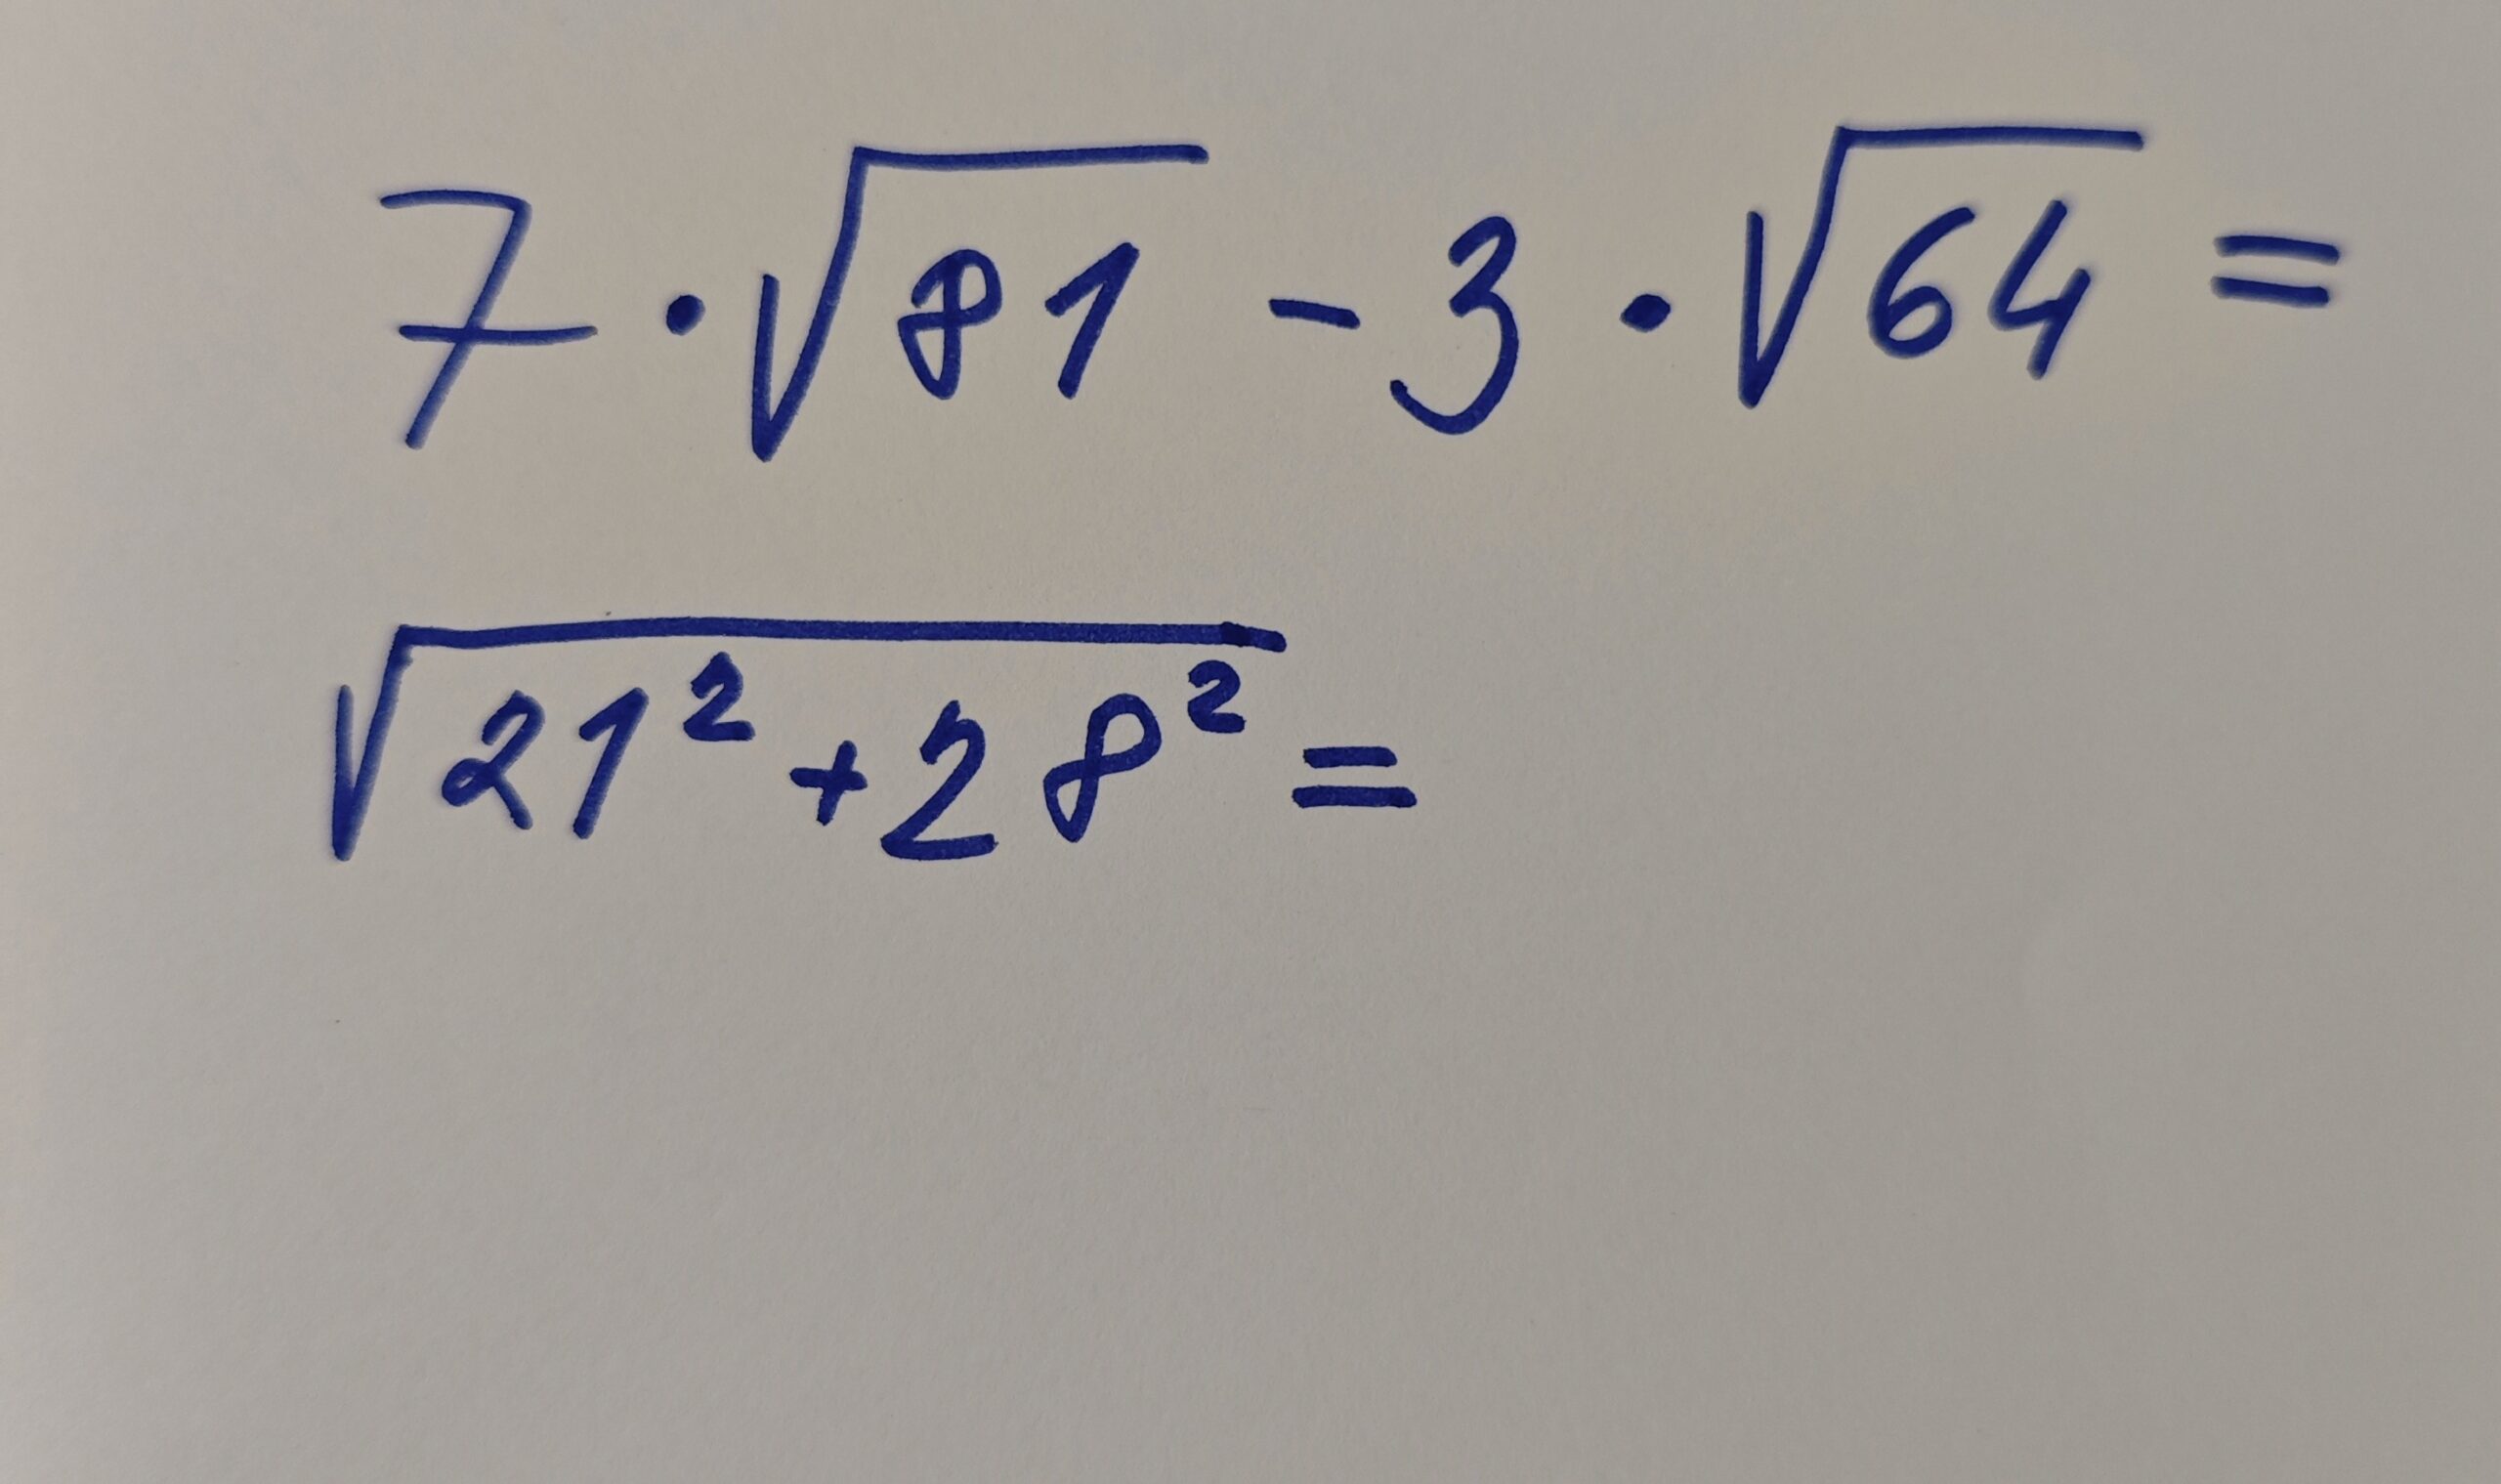 7·√81 - 3·√64 =
√(21² + 28²) =